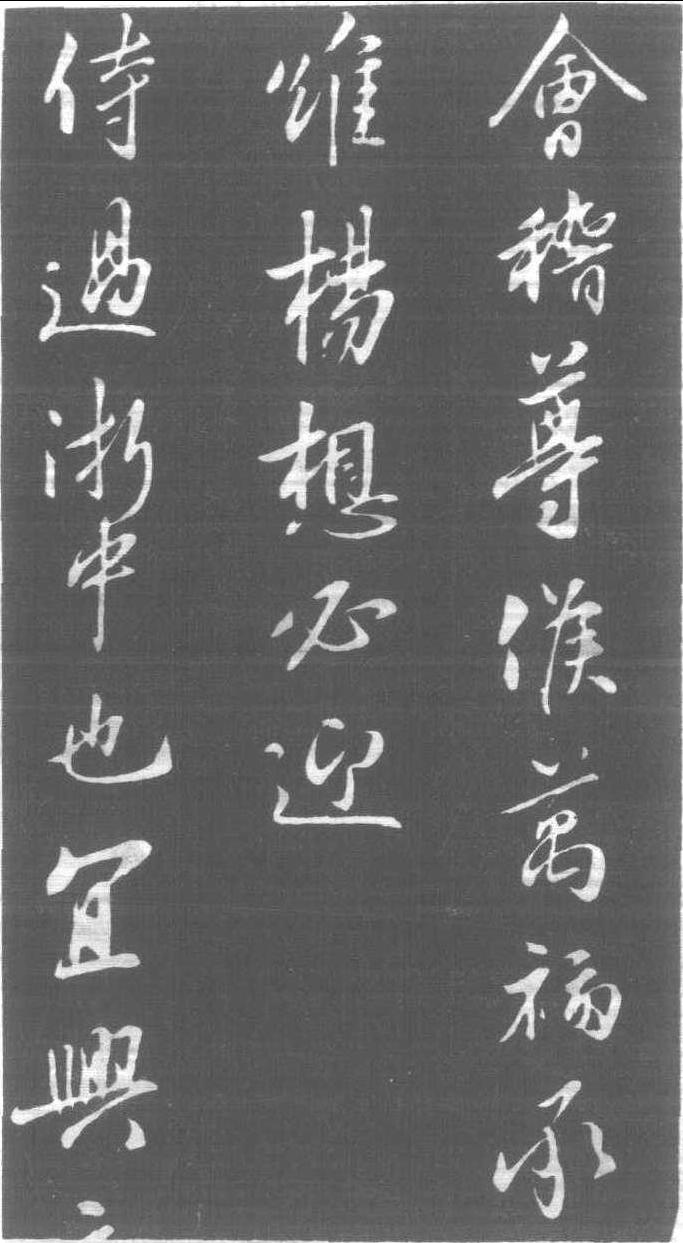 會稽尊候萬福承
維楊想必迎
侍過浙中也冝興